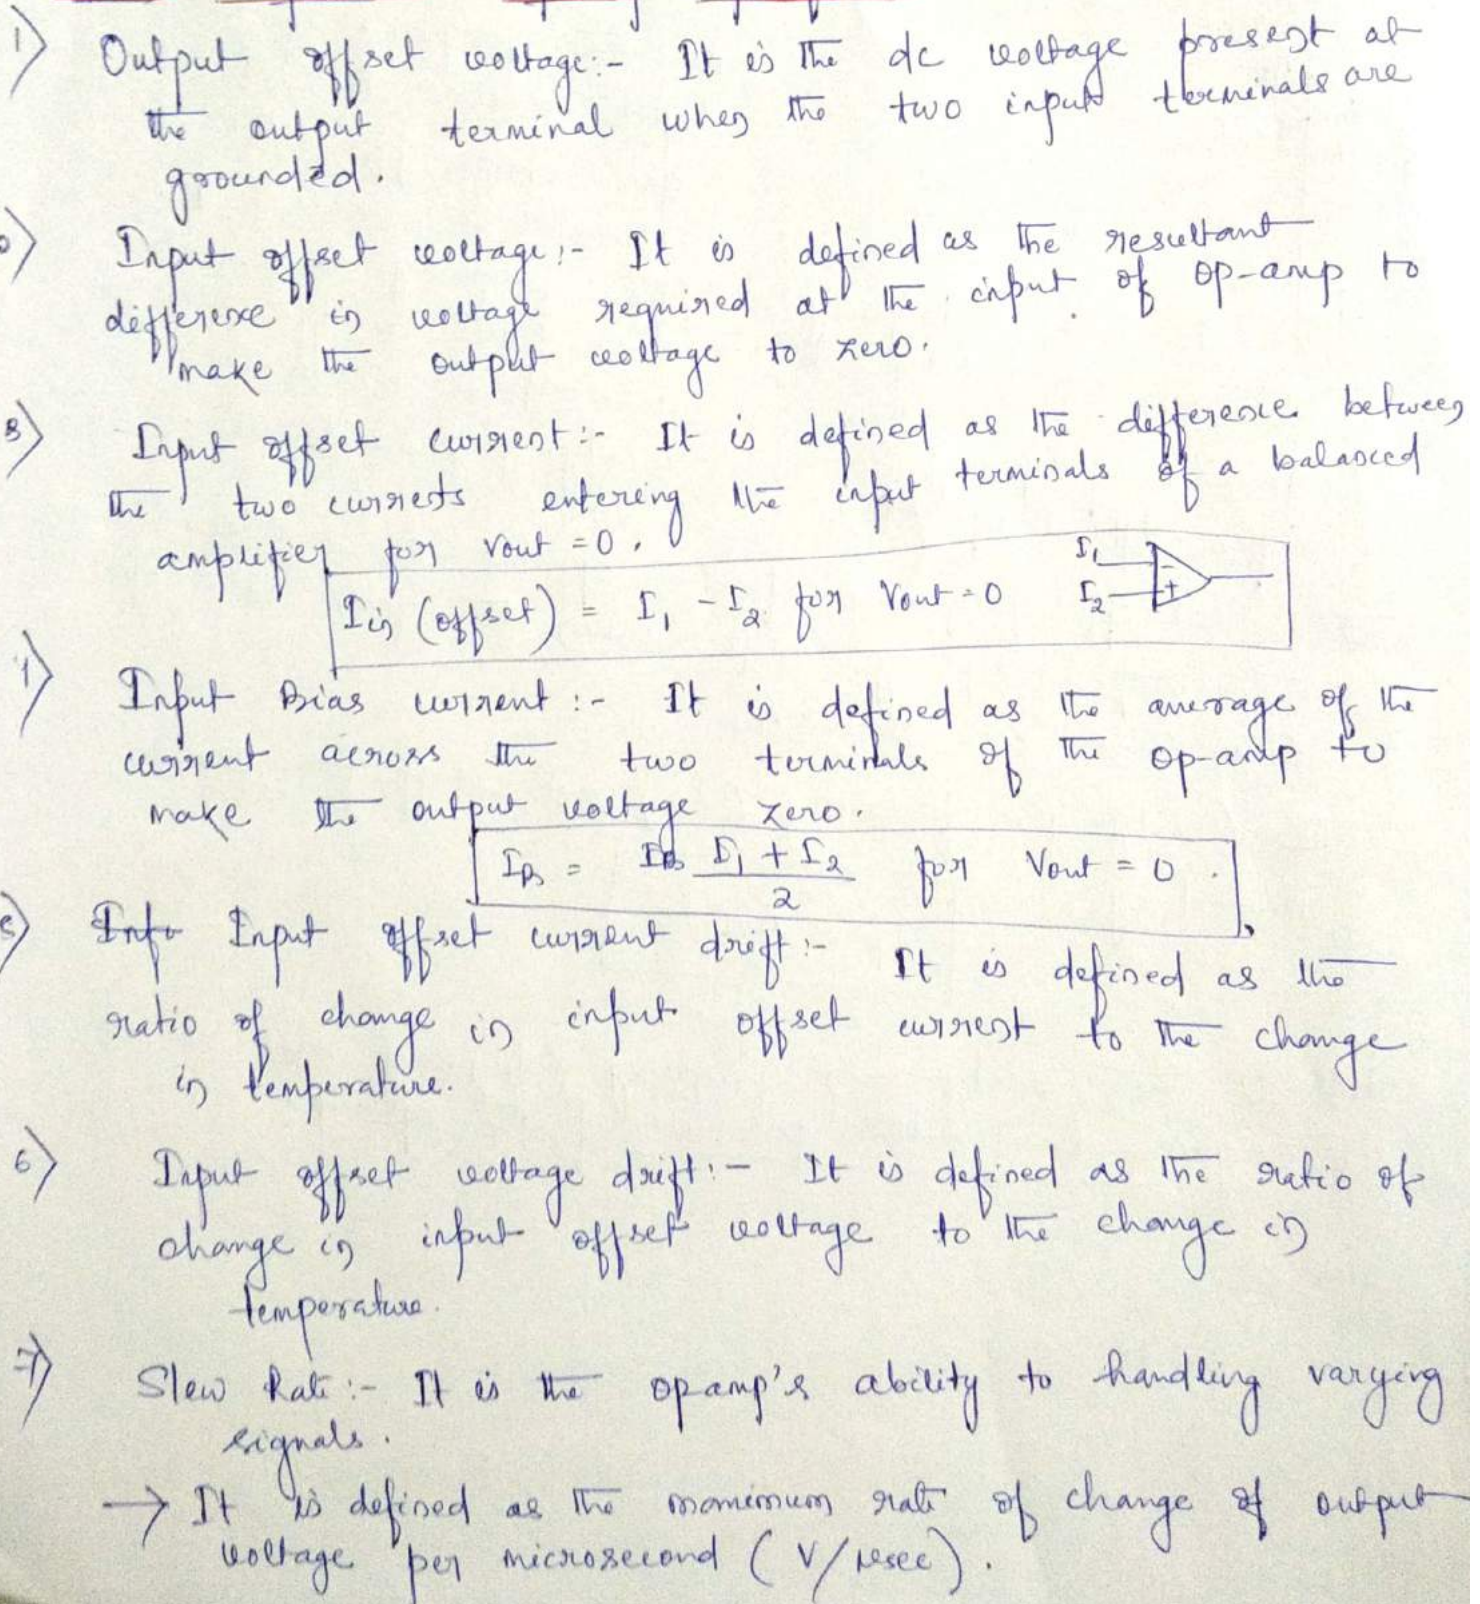 1) Output offset voltage:- It is the dc voltage present at
the output terminal when the two input terminals are
grounded.
Input offset voltage:- It is defined as the resultant
difference in voltage required at the input of op-amp to
make the output voltage to zero.
3) Input offset current:- It is defined as the difference between
the two currents entering the input terminals of a balanced
amplifier for Vout = 0.
Iin (offset) = I1 - I2 for Vout = 0
I1 -
I2 +
Input Bias current :- It is defined as the average of the
current across the two terminals of the op-amp to
make the output voltage zero.
IB = I1 + I2 / 2 for Vout = 0.
5) Input offset current drift:- It is defined as the
ratio of change in input offset current to the change
in temperature.
6) Input offset voltage drift:- It is defined as the ratio of
change in input offset voltage to the change in
temperature.
7) Slew Rate:- It is the opamp's ability to handling varying
signals.
→ It is defined as the maximum rate of change of output
voltage per microsecond (V/μsec).